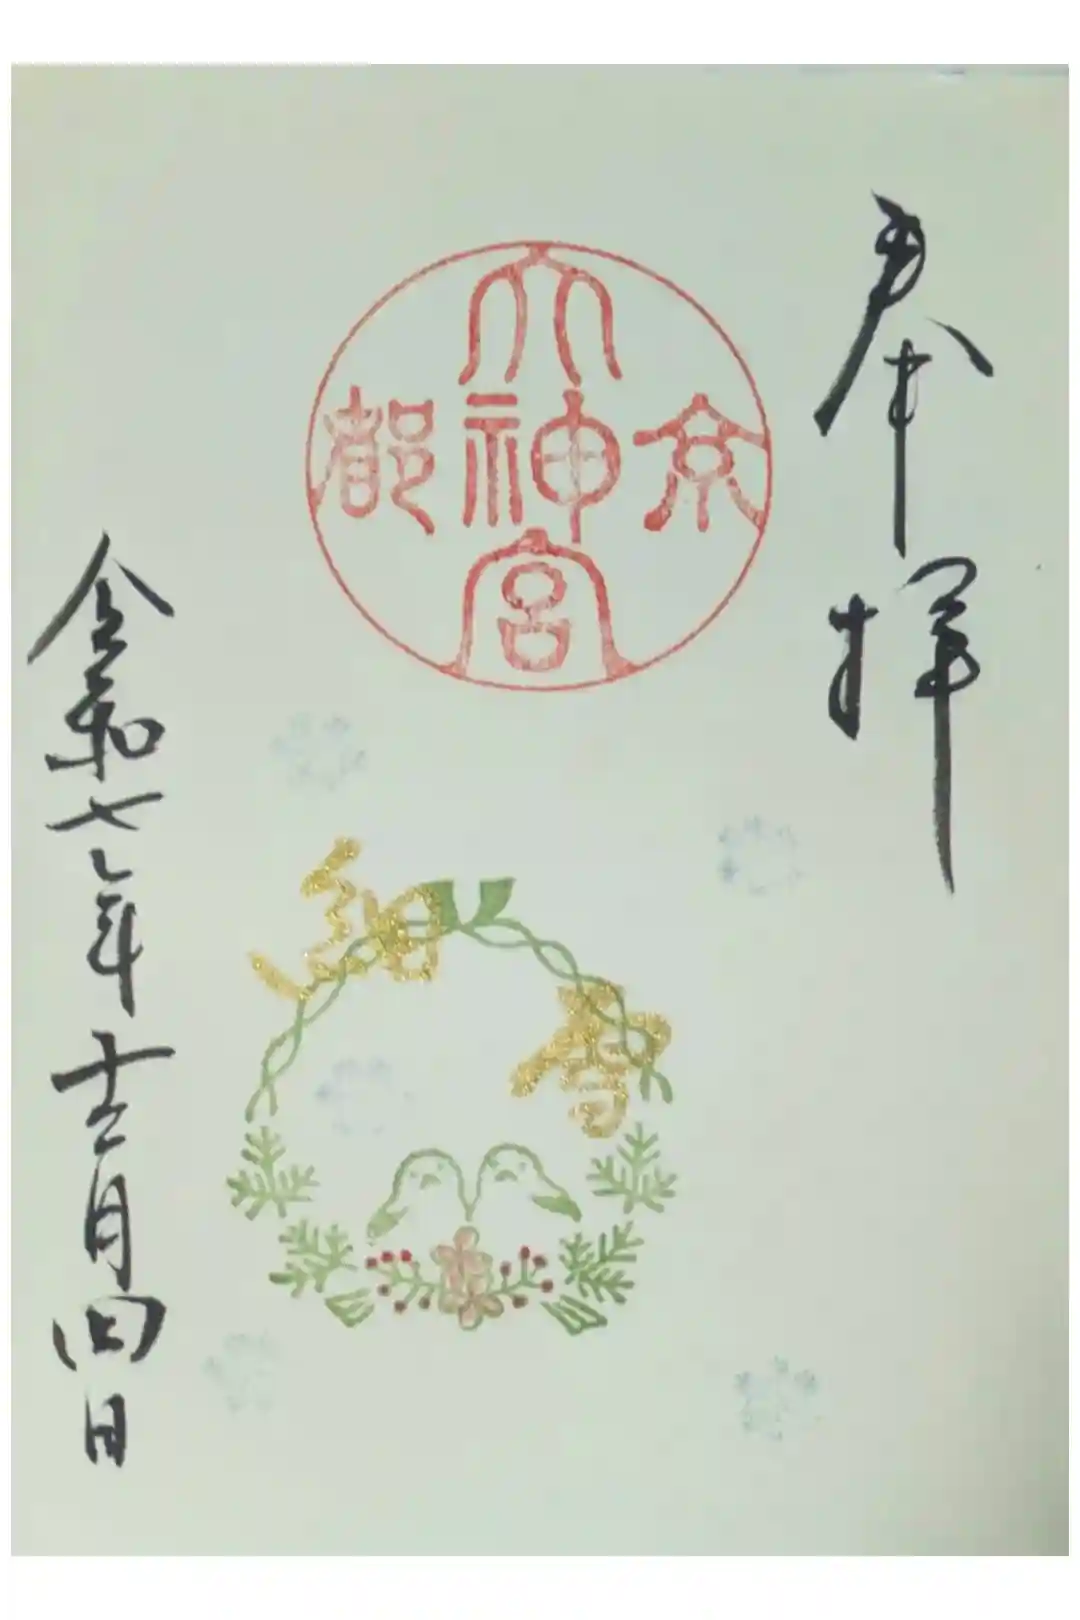 奉拝
京都
大神宮
細雪
令和七年十二月四日